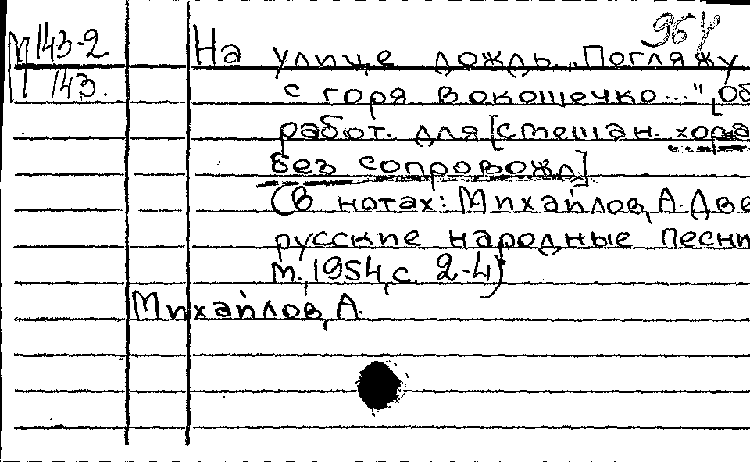 95у
М 143-2
П 143.
На улице дождь. "Погляжу
с горя в окошечко..." [об
работ. для [смешан. хора
без сопровожд]
(В нотах: Михайлов, А. Две
русские народные песни
М., 1954, с. 2-4)
Михайлов, А.